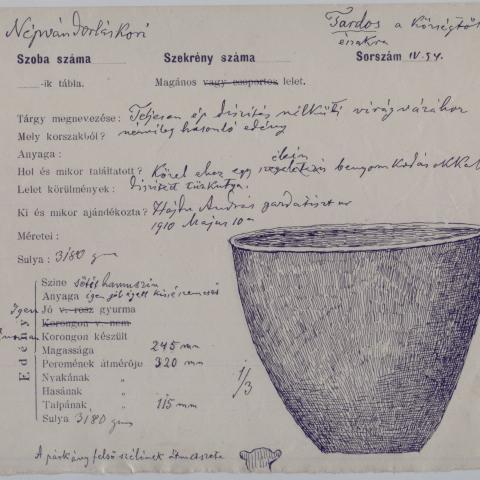 Népvándorláskori
Tardos a Községtől
északra
Szoba száma
Szekrény száma
Sorszám IV. 54.
-ik tábla.
Magános vagy csoportos lelet.
Tárgy megnevezése: Teljesen ép díszítés nélküli virágvázához
Mely korszakból? némileg hasonló edény
Anyaga:
élein
Hol és mikor találtatott? Közel ehez egy benyomkodásokkal
Lelet körülmények: díszített
Ki és mikor ajándékozta? Hajdu András gazdatiszt úr
1910 Május 10-n
Méretei:
Sulya: 3180 gm
Edény
Szine sötét hamuszin
Anyaga igen jól égett
Igen Jó v. rosz gyurma
Korongon v. nem
Korongon készült
Magassága 245 mm
Peremének átmérője 320 mm
Nyakának "
Hasának "
Talpának " 115 mm
Sulya 3180 gm
1/3
A párkány felső szélének átmetszete